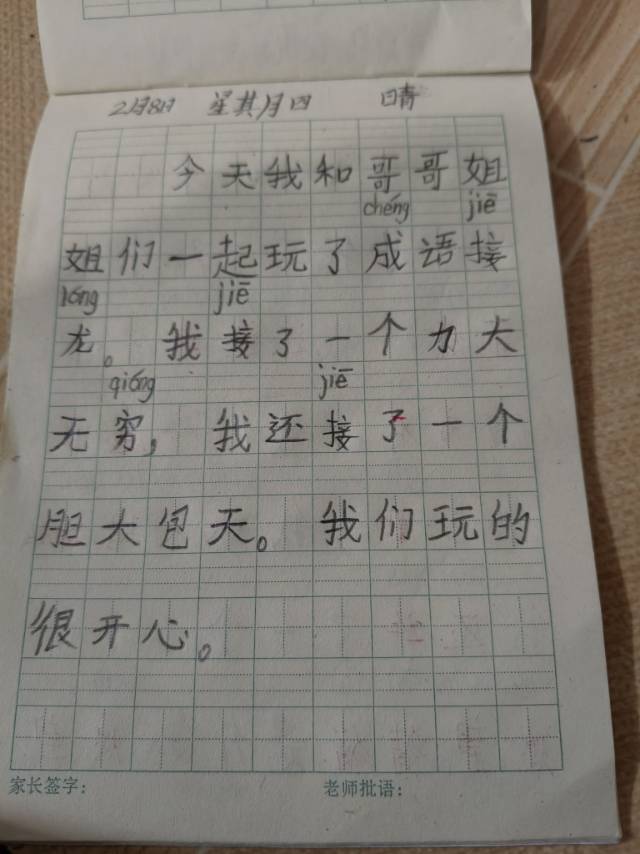 2月8日 星其月四 晴
今天我和哥哥姐
chéng jiē
姐们一起玩了成语接
lóng jiē
龙。我接了一个力大
qióng jiē
无穷，我还接了一个
胆大包天。我们玩的
很开心。
家长签字： 老师批语：